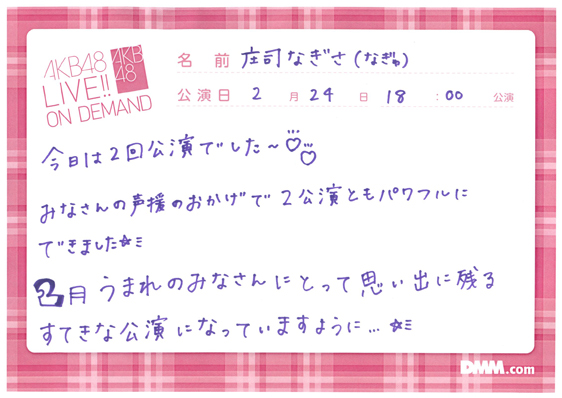 AKB48
LIVE!!
ON DEMAND
AKB
48
名前 庄司なぎさ(なぎゅ)
公演日 2月24日 18:00 公演
今日は2回公演でした~♡♡
みなさんの声援のおかげで2公演ともパワフルに
できました☆ミ
2月うまれのみなさんにとって思い出に残る
すてきな公演になっていますように…☆ミ
DMM.com